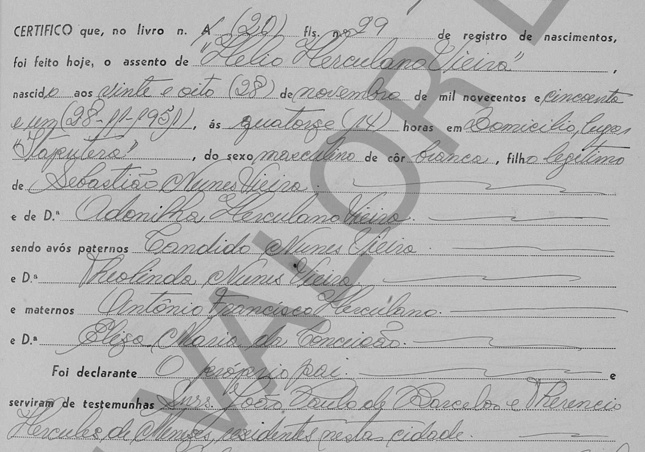 CERTIFICO que, no livro n. A (20) fls. n.º 29 de registro de nascimentos,
foi feito hoje, o assento de "Helio Herculano Vieira",
nascido aos vinte e oito (28) de novembro de mil novecentos e cincoenta
e um (28-11-1951), ás quatorze (14) horas em Domicilio, lugar
"Taputera", do sexo masculino de côr branca, filho legitimo
de Sebastião Nunes Vieira.
e de D.ª Adonilha Herculano Vieira.
sendo avós paternos Candido Nunes Vieira.
e D.ª Theolinda Nunes Vieira.
e maternos Antônio Francisco Herculano.
e D.ª Eliza Maria da Conceição.
Foi declarante O próprio pai. e
serviram de testemunhas Snrs. João Paulo de Barcelos e Therencio
Hercules de Menezes, residentes nesta cidade.
VALOR